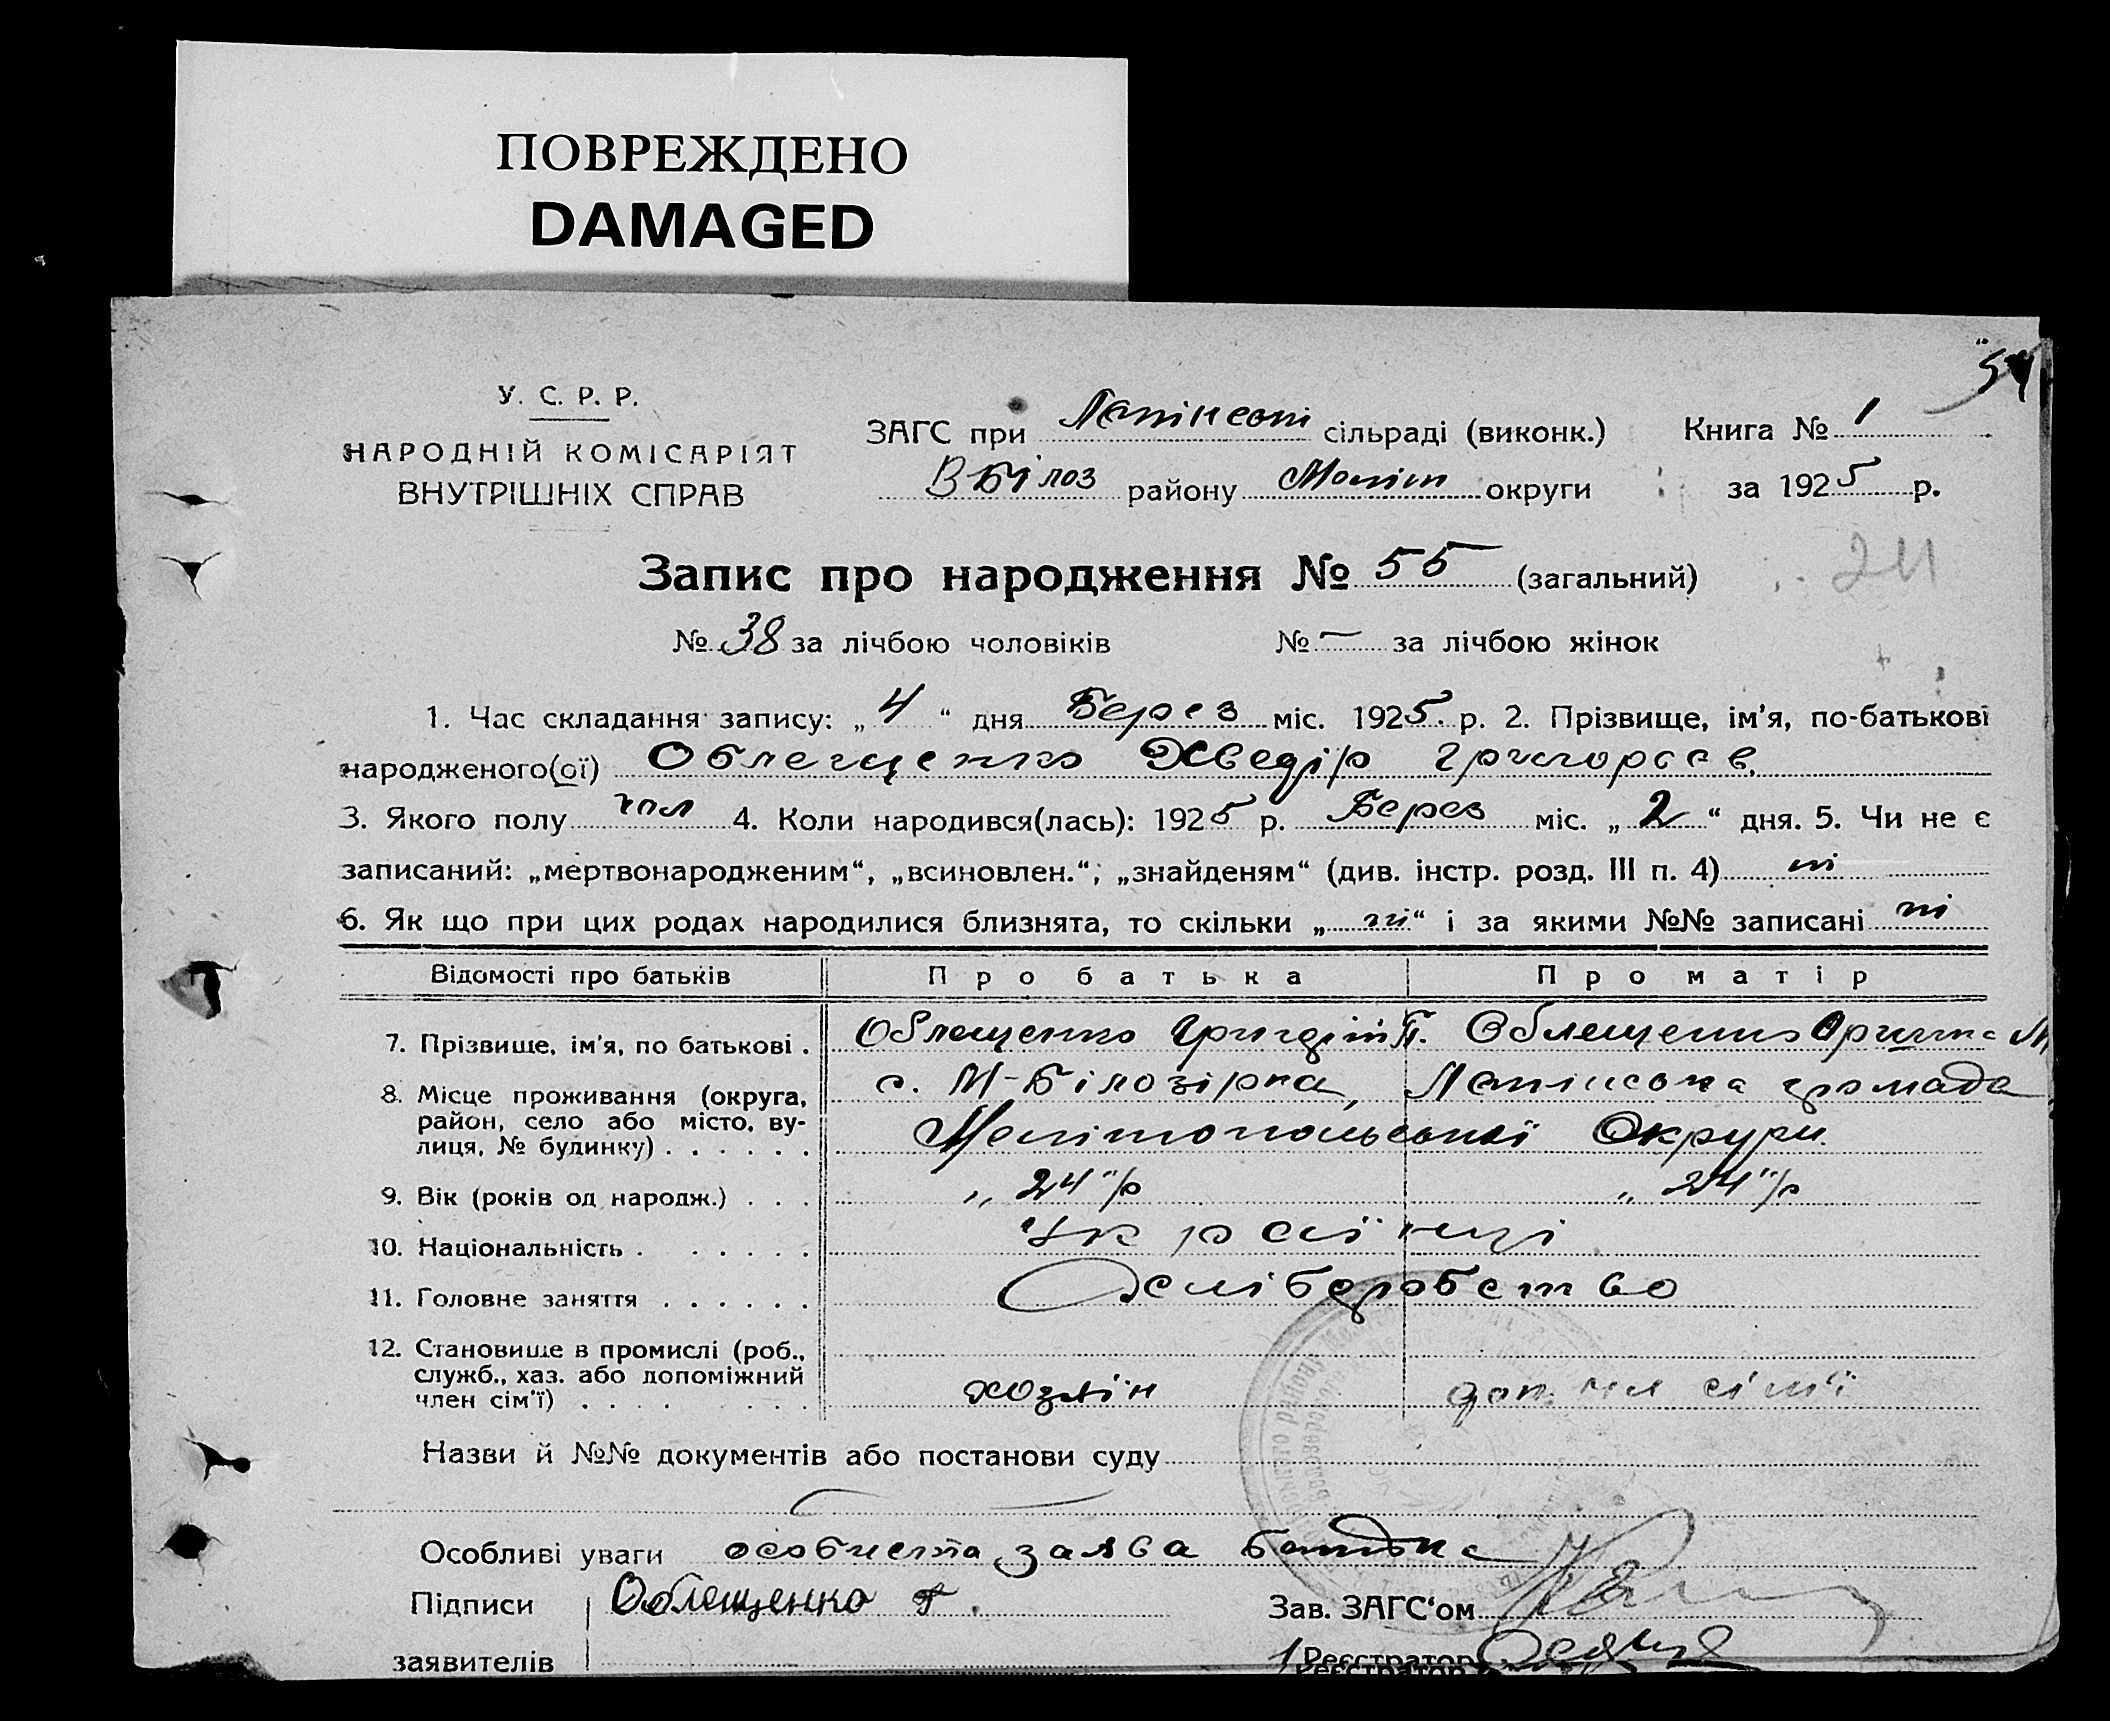 ПОВРЕЖДЕНО
DAMAGED
54
У. С. Р. Р.
НАРОДНІЙ КОМІСАРІЯТ
ВНУТРІШНІХ СПРАВ
ЗАГС при Лапінскій сільраді (виконк.)
ВБілоз району Меліт округи
Книга № 1
за 1925 р.
Запис про народження № 55 (загальний)
24
№ 38 за лічбою чоловіків № — за лічбою жінок
1. Час складання запису: „4“ дня Берез міс. 1925 р. 2. Прізвище, ім’я, по-батькові
народженого(ої) Облещенко Хведір Григорієв.
3. Якого полу чол 4. Коли народився(лась): 1925 р. Берез міс. „2“ дня. 5. Чи не є
записаний: „мертвонародженим“, „всиновлен.“; „знайденям“ (див. інстр. розд. III п. 4) ні
6. Як що при цих родах народилися близнята, то скільки „ні“ і за якими №№ записані ні
Відомості про батьків Про батька Про матір
7. Прізвище, ім’я, по батькові . Облещенко П. Облещенко Орина М
8. Місце проживання (округа, с. М-Білозірка, Лапінська громада
район, село або місто, ву- Мелітопольської Округи.
лиця, № будинку) . . . . . .
9. Вік (років од народж.) . . . „24“/р „24“/р
10. Національність . . . . . . Українці
11. Головне заняття . . . . . . Хліборобство
12. Становище в промислі (роб.,
служб., хаз. або допоміжний хозяін доп. чл сім'ї
член сім’ї) . . . . . . . .
Назви й №№ документів або постанови суду
Особливі уваги особиста заява батька
Підписи Облещенко Г. Зав. ЗАГС‘ом
заявителів Реєстратор